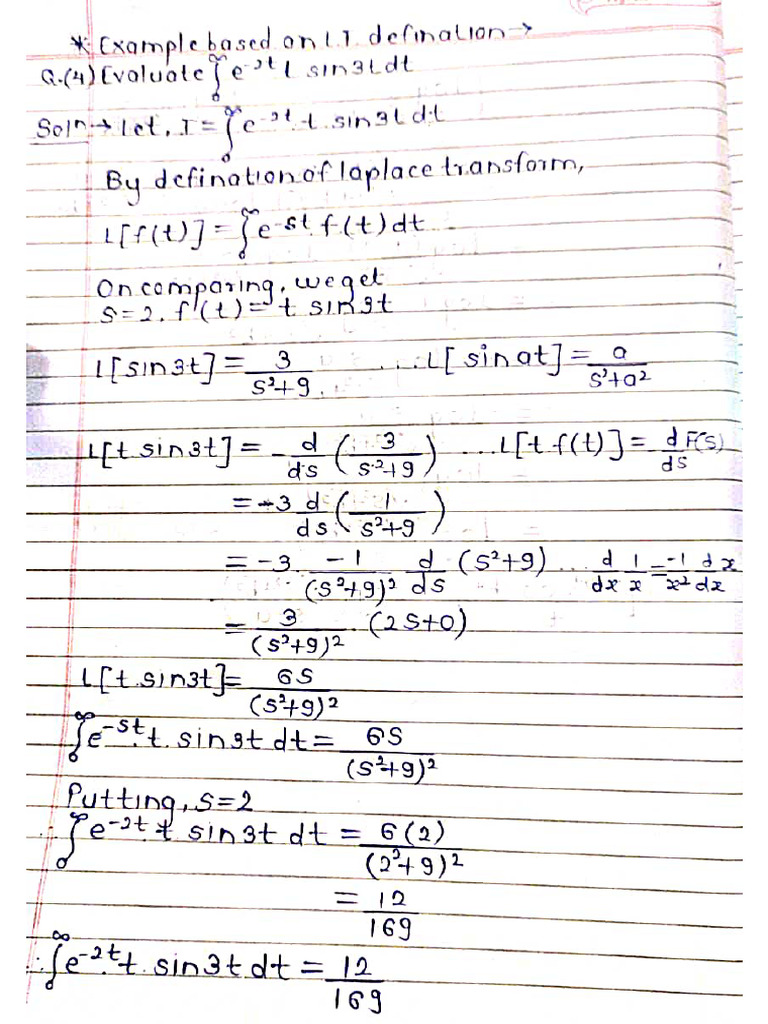 * Example based on L.T. defination →
Q.(4) Evaluate ∫₀^∞ e^-2t t sin3t dt
Solⁿ → Let, I = ∫₀^∞ e^-2t. t. sin3t dt
By defination of laplace transform,
L[f(t)] = ∫₀^∞ e^-st f(t) dt
On comparing, we get
s=2, f(t) = t sin3t
L[sin3t] = 3/(s²+9) ...L[sin at] = a/(s²+a²)
L[t sin3t] = - d/ds (3/(s²+9)) ...L[t f(t)] = d F(s)/ds
= -3 d/ds (1/(s²+9))
= -3. -1/(s²+9)² d/ds (s²+9) ... d/dx 1/x = -1/x² dx/dx
= 3/(s²+9)² (2s+0)
L[t.sin3t] = 6s/(s²+9)²
∫₀^∞ e^-st. t. sin3t dt = 6s/(s²+9)²
Putting, s=2
∴ ∫₀^∞ e^-2t. t sin3t dt = 6(2)/(2²+9)²
= 12/169
∴ ∫₀^∞ e^-2t. t. sin3t dt = 12/169